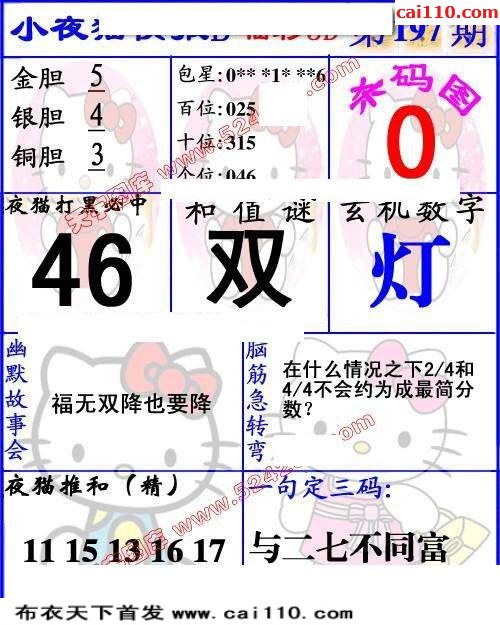 cai110.com
小夜猫 第197期
金胆 5
银胆 4
铜胆 3
包星:0** *1* **6
百位:025
十位:315
个位:046
杀码图
0
夜猫打黑必中
46
和值谜
双
玄机数字
灯
幽默故事会
福无双降也要降
脑筋急转弯
在什么情况之下2/4和
4/4不会约为成最简分
数?
夜猫推和（精）
11 15 13 16 17
一句定三码:
与二七不同富
天字图库 www.5242
布衣天下首发 www.cai110.com